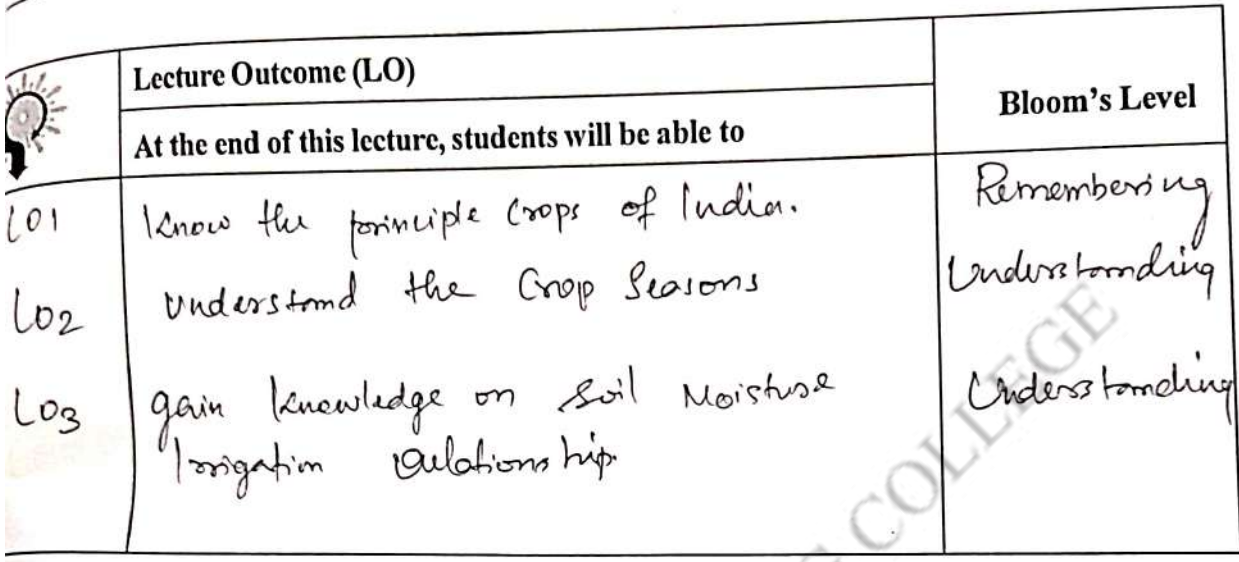 Lecture Outcome (LO)
Bloom's Level
At the end of this lecture, students will be able to
LO1 Know the principle Crops of India. Remembering
LO2 understand the Crop Seasons Understanding
LO3 gain knowledge on Soil Moisture Understanding
Irrigation relationship.
COLLEGE